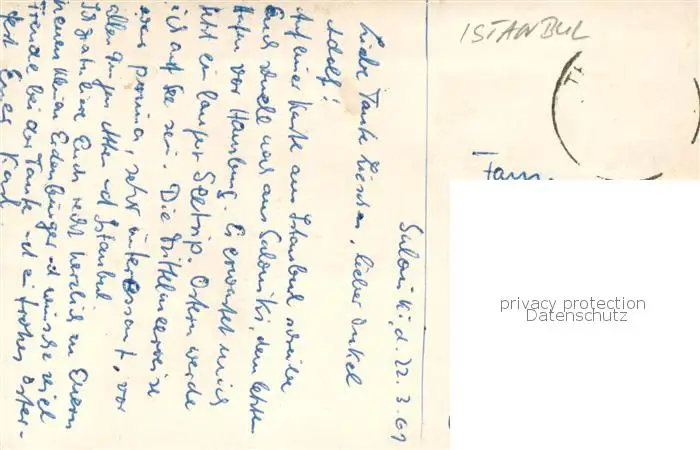 ISTANBUL
Fam.
Saloniki, d. 22.3.61
Liebe Tante Lieschen, lieber Onkel
Adolf!
Auf einer Karte aus Istanbul schreibe
Euch schnell was aus Saloniki, dem letzten
Hafen vor Hamburg. Es erwartet mich
jetzt ein langer Seetrip. Ostern werde
ich auf See sein. Die Mittelmeerreise
war prima, sehr interessant, vor
allen Dingen Athen und Istanbul
Ich gratuliere Euch recht herzlich zu Eurem
neuen kleinen Erdenbürger und wünsche viel
Freude bei der Taufe und ein frohes Oster-
fest Euer Karl
privacy protection
Datenschutz